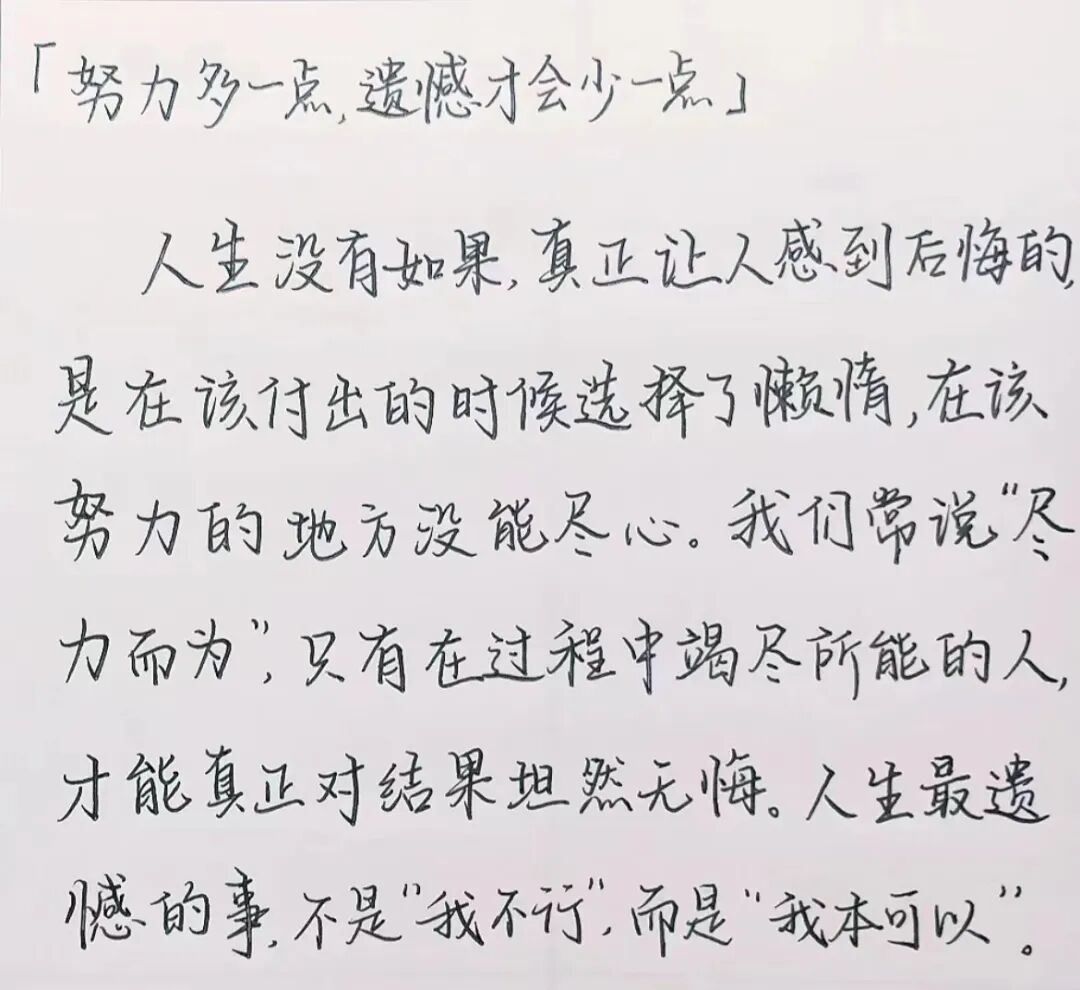 「努力多一点,遗憾才会少一点」
人生没有如果,真正让人感到后悔的,
是在该付出的时候选择了懒惰,在该
努力的地方没能尽心。我们常说“尽
力而为”,只有在过程中竭尽所能的人,
才能真正对结果坦然无悔。人生最遗
憾的事,不是“我不行”,而是“我本可以”。